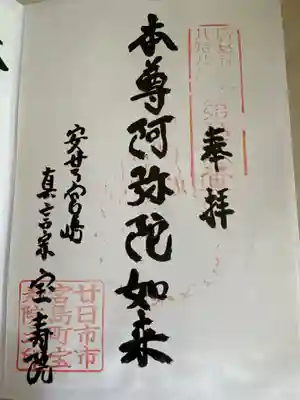 奉拝
本尊阿弥陀如来
安芸宮嶋
真言宗 宝寿院
廿日市市
宮島町宝